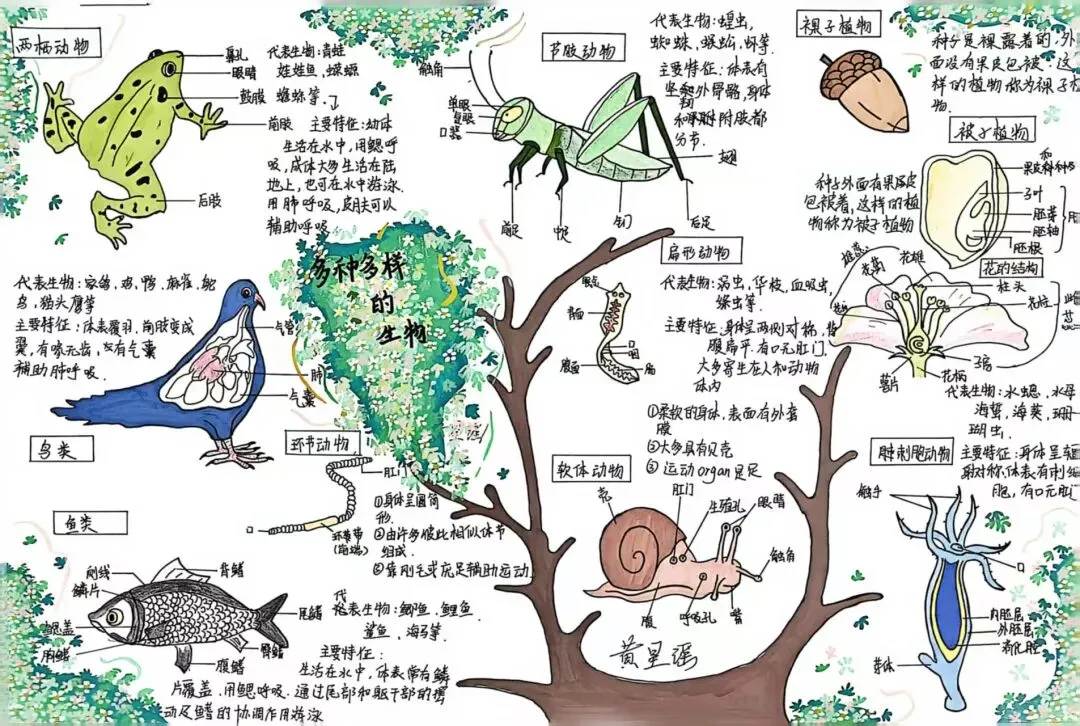 两栖动物
鼻孔
眼睛
鼓膜
前肢
后肢
代表生物:青蛙
娃娃鱼,蝾螈
蟾蜍等.
主要特征:幼体
生活在水中,用鳃呼
吸,成体大多生活在陆
地上,也可在水中游泳.
用肺呼吸,皮肤可以
辅助呼吸
节肢动物
触角
单眼
复眼
口器
前足
中足
后足
翅
代表生物:蝗虫,
蜘蛛,蜈蚣,虾等.
主要特征:体表有
外骨骼,身体
附肢都
分节.
裸子植物
种子是裸露着的,外
面没有果皮包被.这
样的植物称为裸子植
物.
被子植物
种子外面有果皮
包被着,这样的植
物称为被子植物
子叶
胚芽
胚轴
胚根
花的结构
花药
柱头
花柱
子房
花柄
萼片
多种多样
的
生物
代表生物:家鸽,鸡,鸭,麻雀,鸵
鸟,猫头鹰等
主要特征:体表覆羽,前肢变成
翼,有喙无齿,有气囊
辅助肺呼吸.
气管
肺
气囊
鸟类
扁形动物
眼点
背面
腹面
口
咽
代表生物:涡虫,华枝,血吸虫,
绦虫等
主要特征:身体呈两侧对称,背
腹扁平.有口无肛门.
大多寄生在人和动物
体内
环节动物
肛门
口
环带
(前端)
①身体呈圆筒
形.
②由许多彼此相似体节
组成.
③靠刚毛或疣足辅助运动.
软体动物
①柔软的身体,表面有外套
膜
②大多具有贝壳
③运动organ是足
壳
肛门
生殖孔
眼睛
触角
腹
呼吸孔
嘴
腔刺胞动物
代表生物:水螅,水母
海蜇,海葵,珊
瑚虫.
主要特征:身体呈辐
射对称,体表有刺细
胞,有口无肛门
触手
口
内胚层
外胚层
消化腔
芽体
鱼类
侧线
鳞片
鳃盖
胸鳍
背鳍
尾鳍
臀鳍
腹鳍
代表生物:鲫鱼,鲤鱼
鲨鱼,海马等.
主要特征:
生活在水中,体表常有鳞
片覆盖.用鳃呼吸.通过尾部和躯干部的摆
动及鳍的协调作用游泳
黄星强